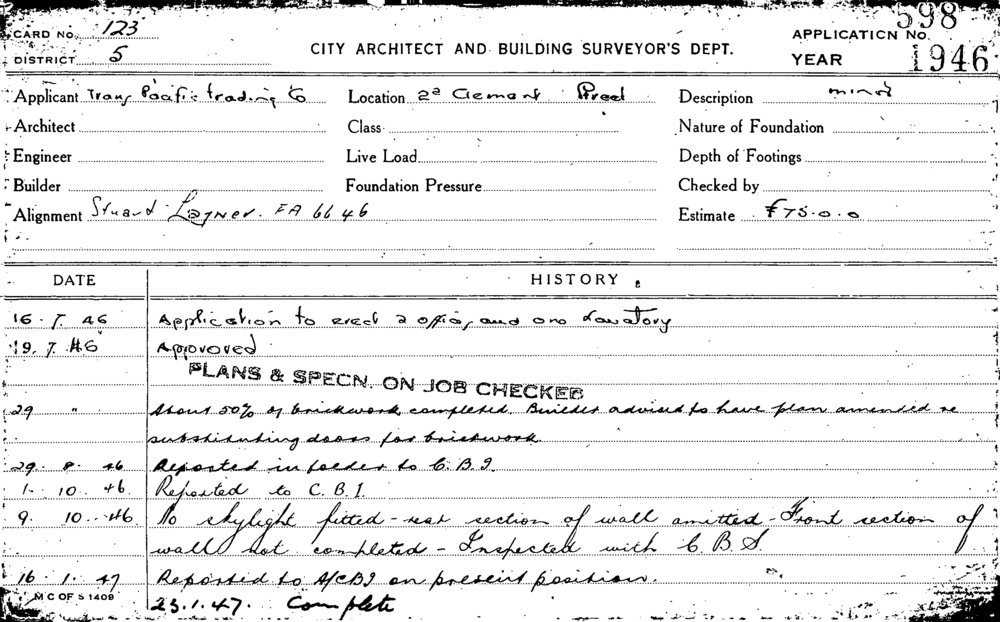 CARD No. 123
DISTRICT 5
CITY ARCHITECT AND BUILDING SURVEYOR'S DEPT.
APPLICATION No. 598
YEAR 1946
Applicant Trans Pacific Trading Co Location 2a Clement Street Description minor
Architect Class Nature of Foundation
Engineer Live Load Depth of Footings
Builder Foundation Pressure Checked by
Alignment FA 6646 Estimate £75.0.0
DATE HISTORY
16.7.46 Application to erect 2 offic, and one Lavatory
19.7.46 Approved
PLANS & SPECN. ON JOB CHECKED
29 " About 50% of brickwork completed. Builder advised to have plan amended re
substituting doors for brickwork.
29.8.46 Reported in folder to C.B.I.
1.10.46 Reported to C.B.I.
9.10.46 No skylight fitted - rear section of wall omitted - Front section of
wall not completed - Inspected with C.B.S.
16.1.47 Reported to A/CBI on present position.
M C OF S 1409
23.1.47. Complete